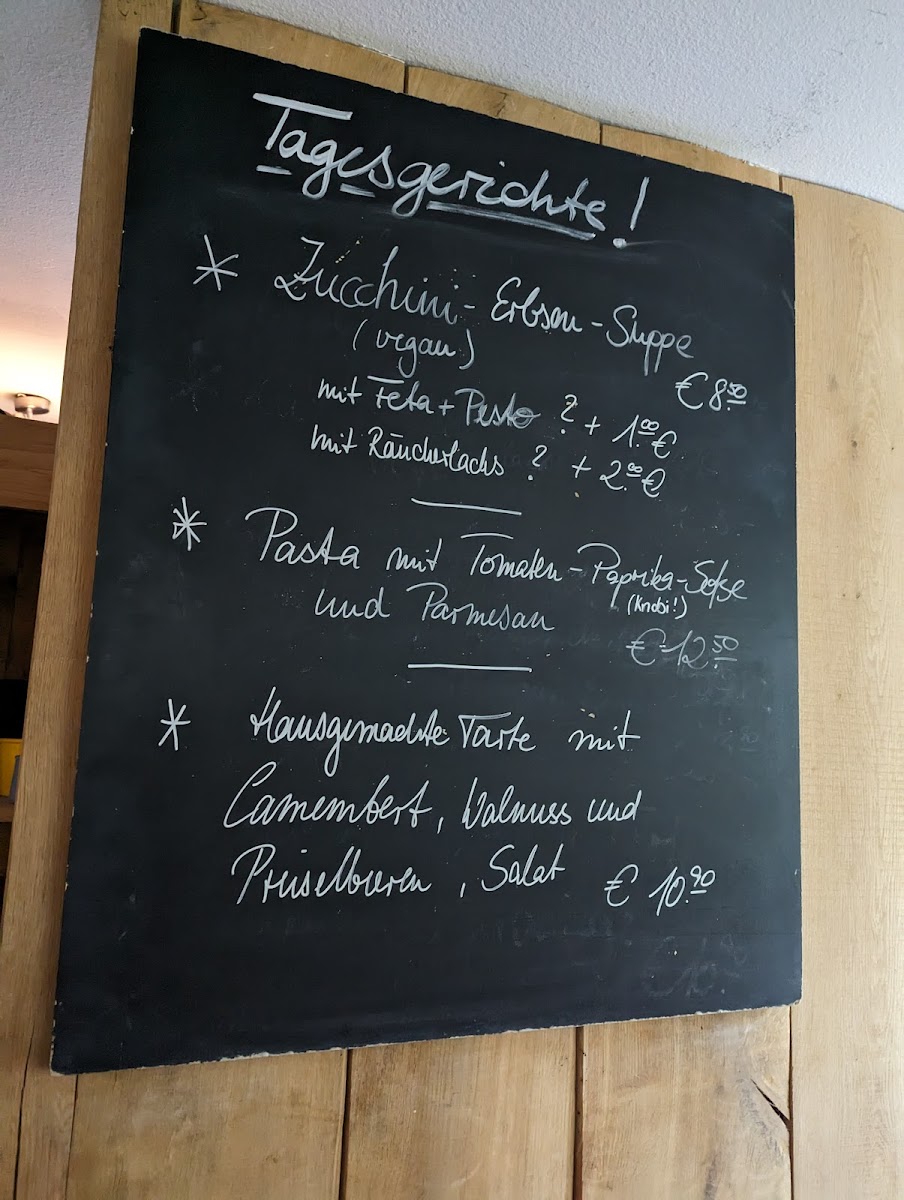 Tagesgerichte!
* Zucchini-Erbsen-Suppe
(vegan)
€ 8.50
mit Feta + Pesto ? + 1.00 €
mit Räucherlachs ? + 2.00 €
* Pasta mit Tomaten-Paprika-Soße
(Knobi!)
und Parmesan
€ 12.50
* Hausgemachte Tarte mit
Camembert, Walnuss und
Preiselbeeren, Salat € 10.90